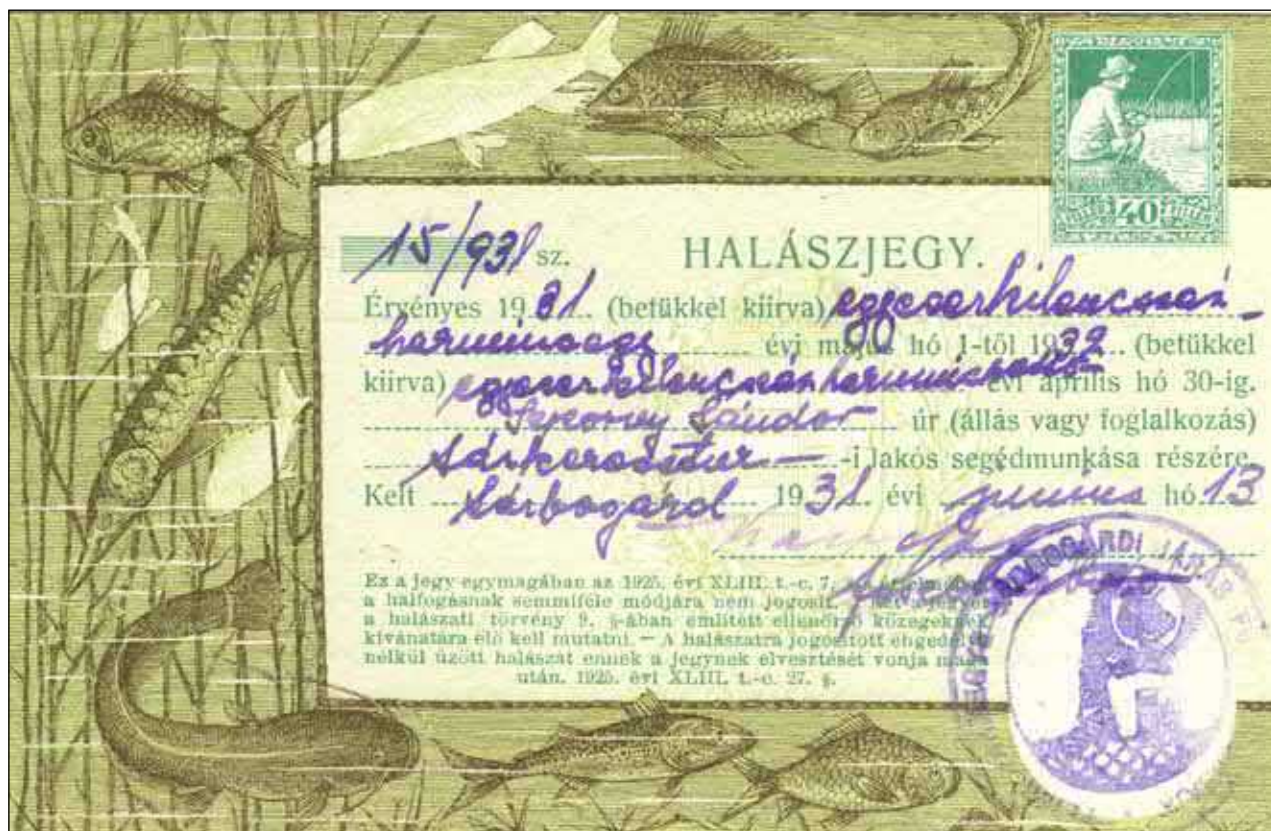 FILLÉR 40 FILLÉR
15/931 sz. HALÁSZJEGY.
Érvényes 1931. (betükkel kiirva) egyezerkilencszáz-
harmincegy évi május hó 1-től 1932. (betükkel
kiirva) egyezerkilencszázharminckettő évi április hó 30-ig.
Sándor úr (állás vagy foglalkozás)
Sárkeresztur -i lakós segédmunkása részére.
Kelt Sárbogárd 1931. évi junius hó 13
Ez a jegy egymagában az 1925. évi XLIII. t.-c. 7. §-a értelmében
a halfogásnak semmiféle módjára nem jogosit. – Ezt a jegyet
a halászati törvény 9. §-ában emlitett ellenőrző közegeknek
kivánatára elő kell mutatni. – A halászatra jogositott engedélye
nélkül üzött halászat ennek a jegynek elvesztését vonja maga
után. 1925. évi XLIII. t.-c. 27. §.
SÁRBOGÁRDI JÁRÁS